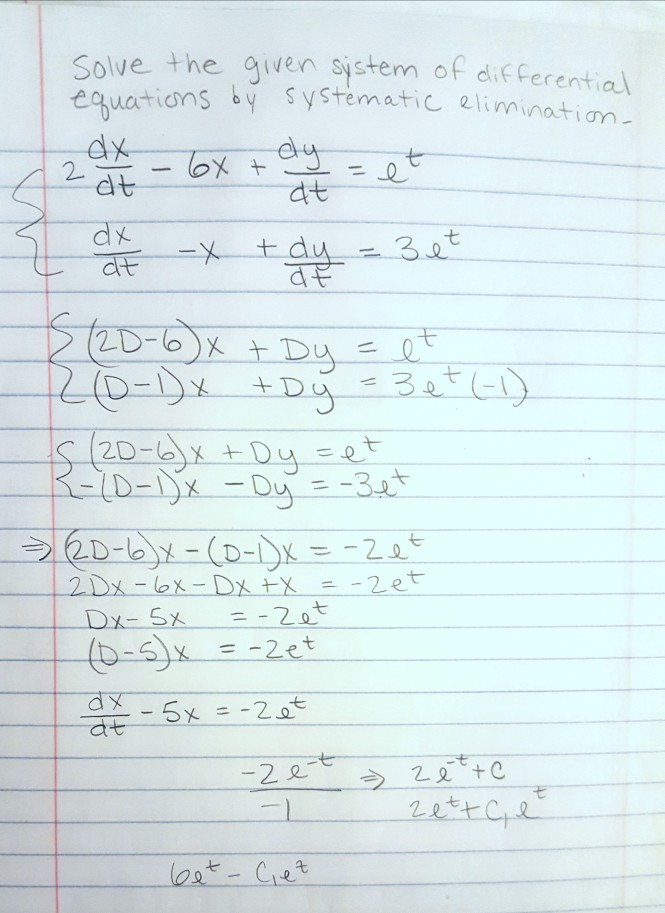 Solve the given system of differential
equations by systematic elimination.
2 dx/dt - 6x + dy/dt = e^t
dx/dt - x + dy/dt = 3e^t
(2D-6)x + Dy = e^t
(D-1)x + Dy = 3e^t (-1)
(2D-6)x + Dy = e^t
-(D-1)x - Dy = -3e^t
⇒ (2D-6)x - (D-1)x = -2e^t
2Dx - 6x - Dx + x = -2e^t
Dx - 5x = -2e^t
(D-5)x = -2e^t
dx/dt - 5x = -2e^t
-2e^-t/-1 ⇒ 2e^-t + C
2e^t + C₁e^t
6e^t - C₁e^t